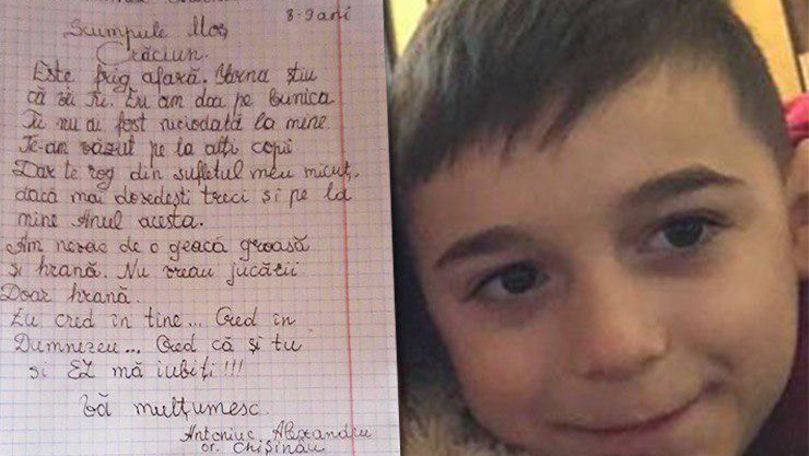 8-9 ani
Scumpule Moș
Crăciun.
Este frig afară. Iarna știu
că vii Tu. Eu am doa pe bunica
Tu nu ai fost niciodată la mine
Te-am văzut pe la alți copii
Dar te rog din sufletul meu micuț,
dacă mai dovedești treci și pe la
mine Anul acesta.
Am nevoe de o geacă groasă
și hrană. Nu vreau jucării
Doar hrană.
Eu cred în tine... Cred în
Dumnezeu... Cred că și tu
și EL mă iubiți!!!
Vă mulțumesc.
Antoniuc Alexandru
or. Chișinău